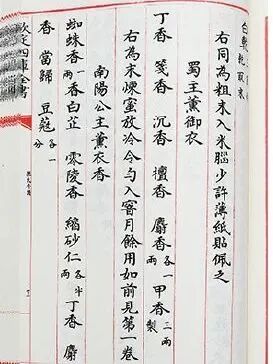 右同為粗末入米腦少許薄紙貼佩之
蜀王薰御衣
丁香 箋香 沉香 檀香 麝香各一 甲香兩製
右為末煉蜜放冷令勻入窨月餘用如前見第一卷
南陽公主薰衣香
蜘蛛香一兩 香白芷 零陵香 縮砂仁各半兩 丁香 麝
香 當歸 豆蔻各一分
欽定四庫全書